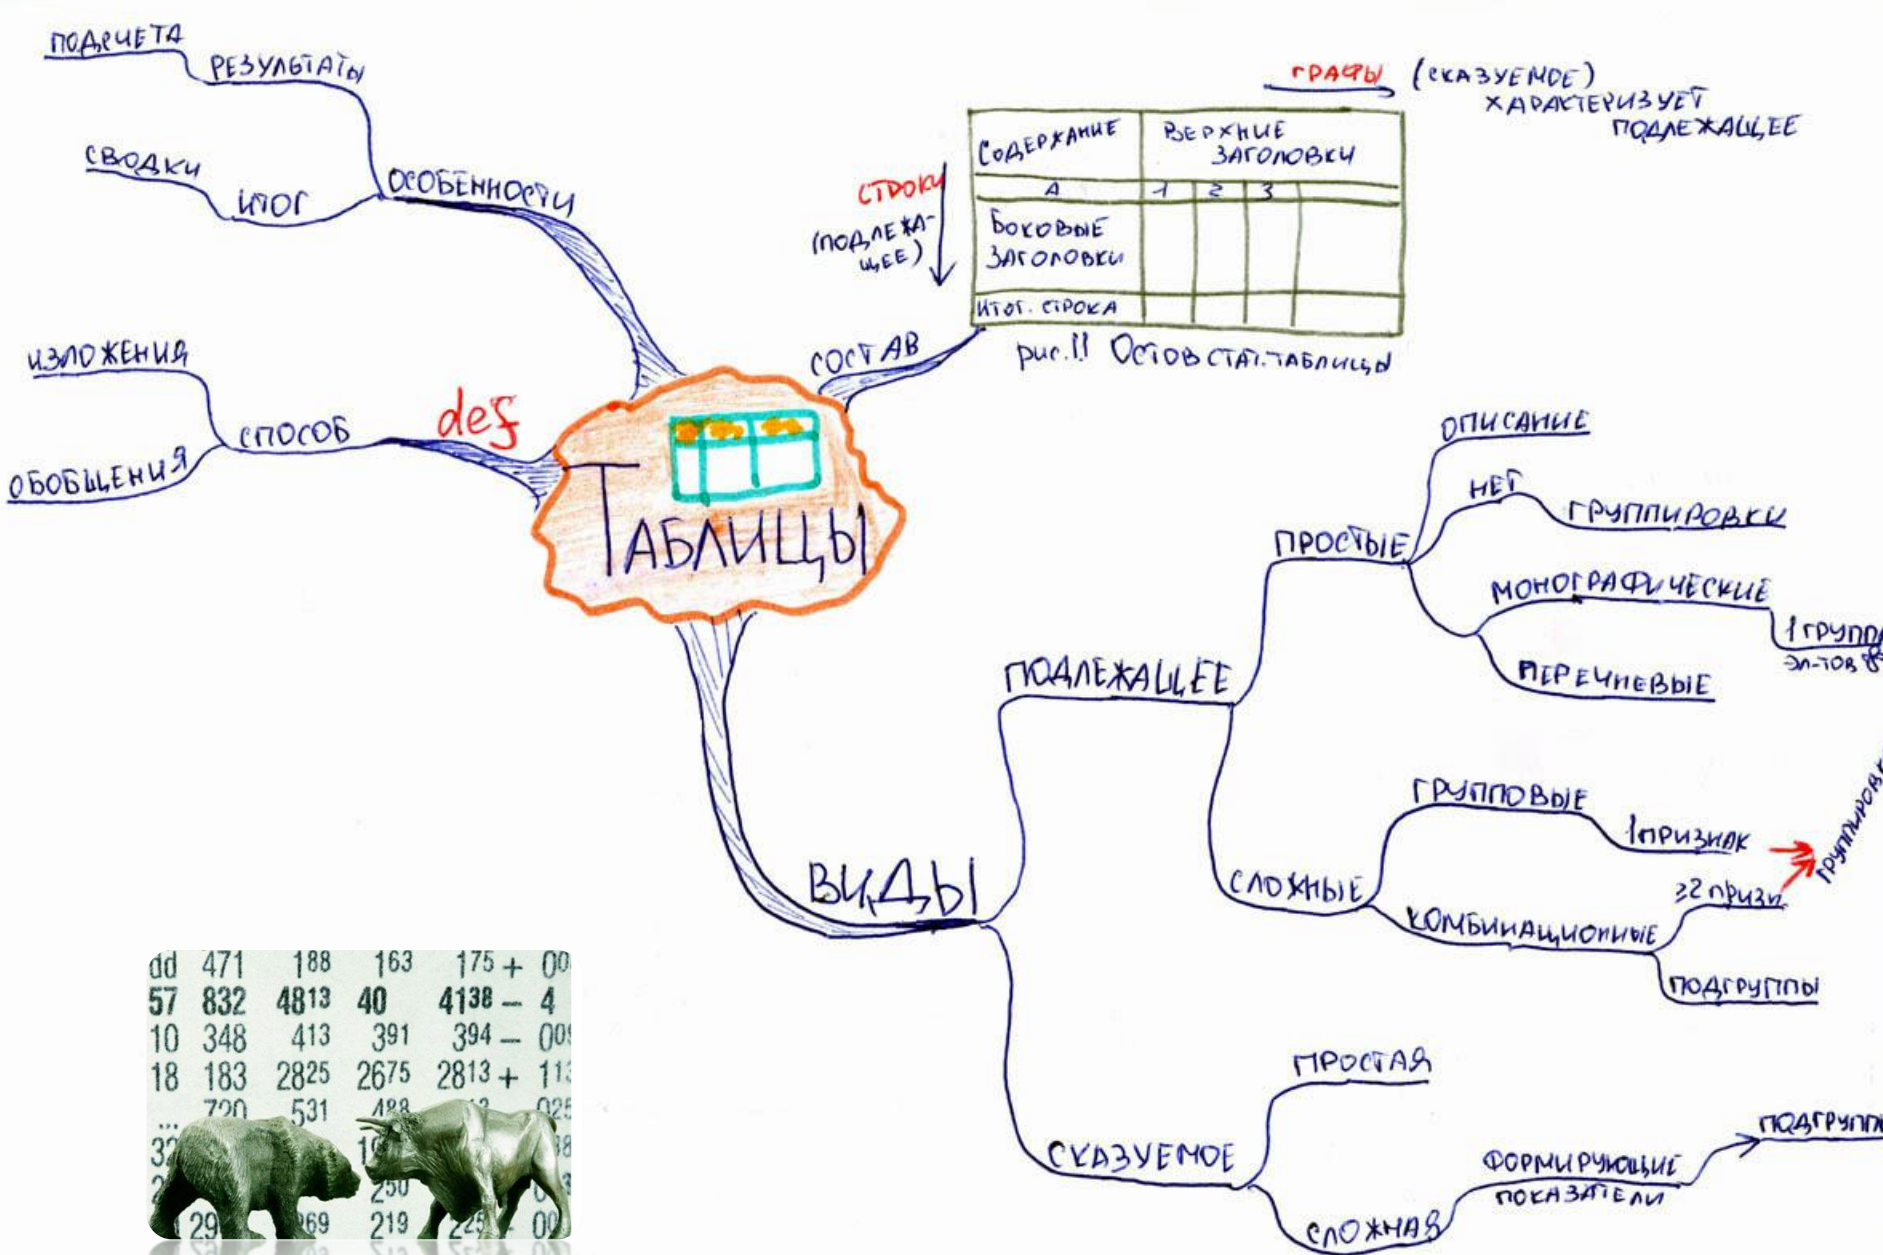 ПОДСЧЕТА
РЕЗУЛЬТАТЫ
СВОДКИ
ИТОГ
ОСОБЕННОСТИ
ИЗЛОЖЕНИЯ
ОБОБЩЕНИЯ
СПОСОБ
def
ТАБЛИЦЫ
СОСТАВ
ГРАФЫ (СКАЗУЕМОЕ)
ХАРАКТЕРИЗУЕТ
ПОДЛЕЖАЩЕЕ
СТРОКИ
(ПОДЛЕЖА-
ЩЕЕ)
СОДЕРЖАНИЕ
ВЕРХНИЕ
ЗАГОЛОВКИ
А 1 2 3
БОКОВЫЕ
ЗАГОЛОВКИ
ИТОГ. СТРОКА
рис.11 ОСТОВ СТАТ.ТАБЛИЦЫ
ВИДЫ
ПОДЛЕЖАЩЕЕ
ПРОСТЫЕ
ОПИСАНИЕ
НЕТ
ГРУППИРОВКИ
МОНОГРАФИЧЕСКИЕ
1 ГРУППА
ЭЛ-ТОВ
ПЕРЕЧНЕВЫЕ
СЛОЖНЫЕ
ГРУППОВЫЕ
1 ПРИЗНАК
КОМБИНАЦИОННЫЕ
≥2 ПРИЗН
ПОДГРУППЫ
ГРУППИРОВК
СКАЗУЕМОЕ
ПРОСТАЯ
СЛОЖНАЯ
ФОРМИРУЮЩИЕ
ПОКАЗАТЕЛИ
ПОДГРУПП
dd 471 188 163 175 + 00
57 832 4813 40 4138 – 4
10 348 413 391 394 – 009
18 183 2825 2675 2813 + 113
... 720 531 488 025
32
250
29 269 219 225 00